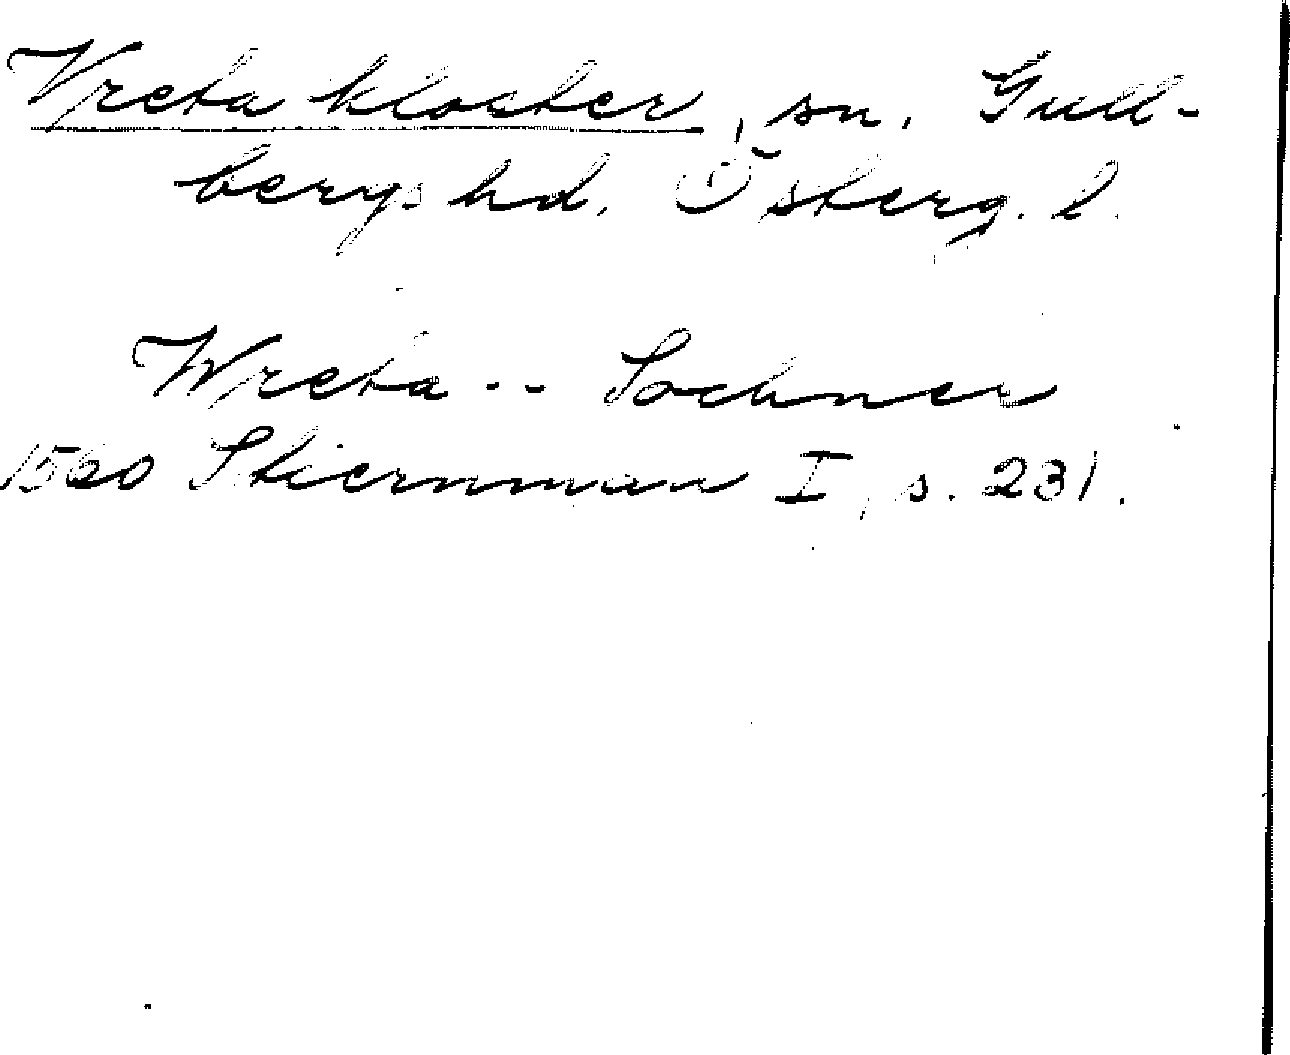 Vreta kloster, sn. Gull-
bergs hd. Österg. l.
Wreta -- Sochnen
1560 Stiernman I, s. 231.